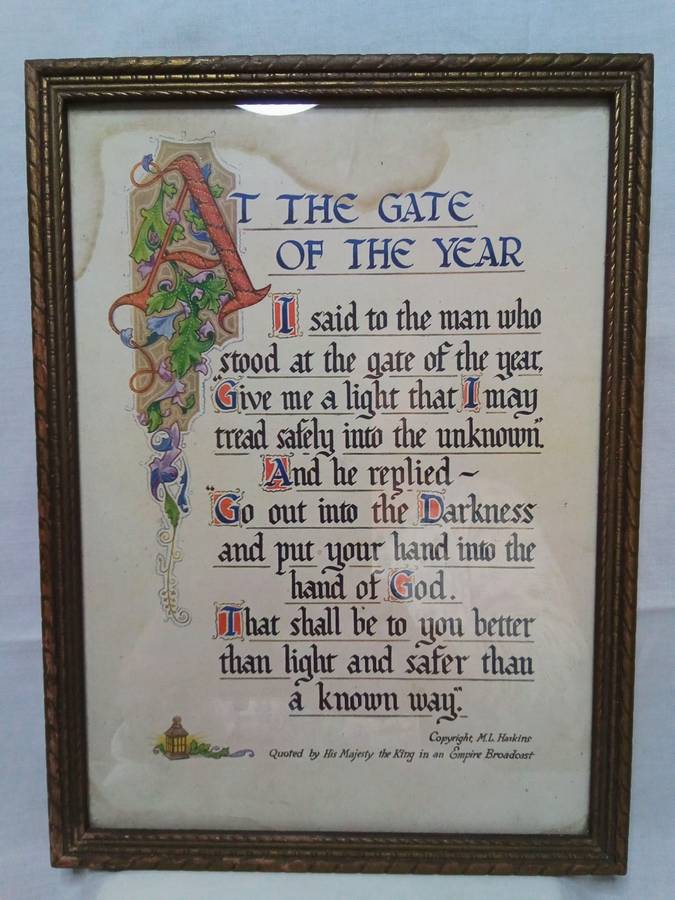 AT THE GATE
OF THE YEAR
I said to the man who
stood at the gate of the year,
"Give me a light that I may
tread safely into the unknown".
And he replied ~
"Go out into the Darkness
and put your hand into the
hand of God.
That shall be to you better
than light and safer than
a known way".
Copyright, M.L. Haskins
Quoted by His Majesty the King in an Empire Broadcast